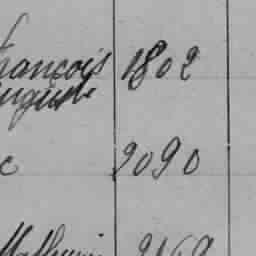 François 1802
Auguste
c 2090
Mathurin 2169